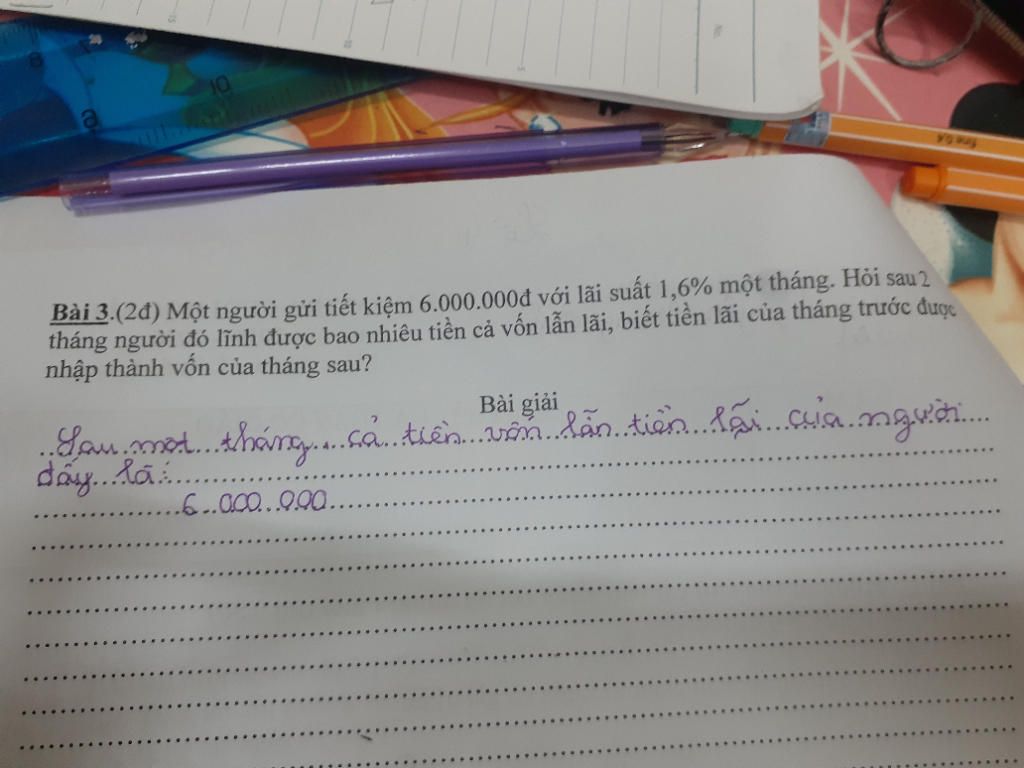 No.
15
10
5
8
10
9
fine 0,4
Bài 3.(2đ) Một người gửi tiết kiệm 6.000.000đ với lãi suất 1,6% một tháng. Hỏi sau 2
tháng người đó lĩnh được bao nhiêu tiền cả vốn lẫn lãi, biết tiền lãi của tháng trước được
nhập thành vốn của tháng sau?
Bài giải
Sau một tháng cả tiền vốn lẫn tiền lãi của người
đấy là:
6 000 000